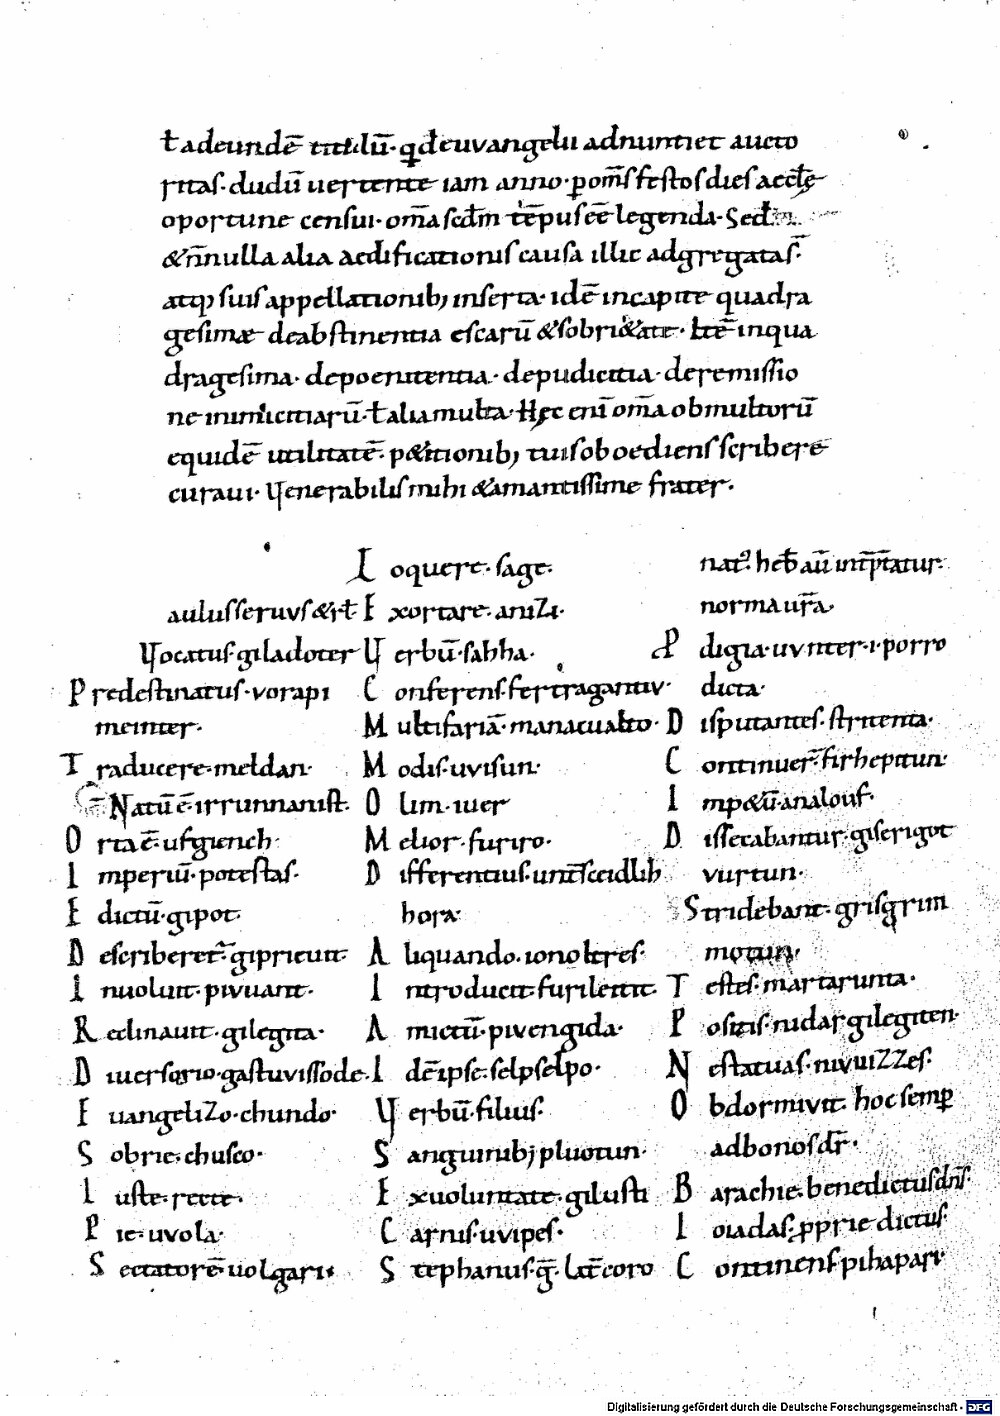 ł adeundē titulū· qđ euvangelii adnuntiet aucto
ritas· dudū uertente iam anno· ꝑ om̄s festos dies aeccłe
oportune censui· om̄a sedm̄ tēpus eē legenda· Sed
&n̄nulla alia aedificationis causa illic adgregatas·
atq; suis appellationib; inserta· idē incapite quadra
gesimæ de abstinentia escarū &sobri&ate· ItE inqua
dragesima· depoenitentia· depudicitia· deremissio
ne inimicitiarū· ł alia multa· Hęc eni om̄a ob multorū
equidē utilitatē· p&itionib; tuis oboediens scribere
curaui· Venerabilis mihi &amantissime frater·
aulus seruus & rł
Vocatus· giladoter
Predestinatus· vorapi
meinter·
Traducere· meldan·
Natū ē· irrunnanist·
Orta ē· ufgiench·
Imperiū· potestas·
Edictū· gipot·
Describeret· gipricutt·
Inuoluit· pivuant·
Reclinauit· gilegita·
Diuersorio· gastuvissode·
Euangelizo· chundo·
Sobrie· chusco·
Iuste· recte·
Pie· uvola·
Sectatorē· uolgari
Loquere· sage·
Exortare· anizi·
Verbū· sahha·
Conferens· fertragantiv·
Multifariā· manacualto·
Modis· uvisun·
Olim· iuer
Melior· furiro·
Differentius· untsceidlih
hora·
Aliquando· ionoltres·
Introducit· furileitit·
Amictū· pivengida·
Idē ipse· selpselpo·
Verbū· filius·
Sanguinib; pluotun·
Exuoluntate· gilusti
Carnis· uvipes·
Stephanus· ḡ· laī coro
nat᷒· heb aū intp̄tatur·
norma ur̄a·
Pdigia· uvnter· i· porro
dicta·
Disputantes· stritenta·
Continuer̄· firhepitun·
Imp&ū· analouf·
Dissecabantur· giserigot
vurtun·
Stridebant· grisgrim
motun·
Testes· martarunta·
Positis· nidar gilegiten·
Nestatuas· nivuizzes·
Obdormivit· hoc semp
ad bonos dr̄·
Barachie· benedictus dn̄s·
Ioiadas· ꝓprie dictus·
Continens pihapari